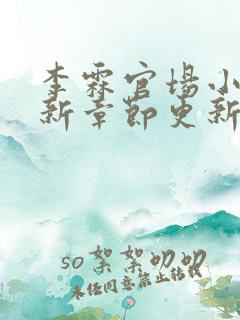 李霖官场小
新章节更新
so絮絮叨叨
未经同意禁止转载